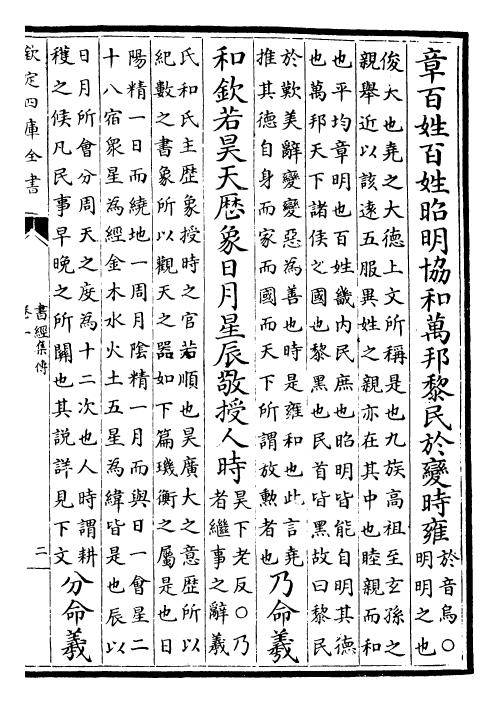 章百姓百姓昭明協和萬邦黎民於變時雍
於音烏○
明明之也
俊大也堯之大德上文所稱是也九族高祖至玄孫之
親舉近以該遠五服異姓之親亦在其中也睦親而和
也平均章明也百姓畿内民庶也昭明皆能自明其德
也萬邦天下諸侯之國也黎黑也民首皆黑故曰黎民
於歎美辭變變惡為善也時是雍和也此言堯
推其德自身而家而國而天下所謂放勲者也
乃命羲
和欽若昊天厯象日月星辰敬授人時
昊下老反○乃
者繼事之辭羲
氏和氏主厯象授時之官若順也昊廣大之意厯所以
紀數之書象所以觀天之器如下篇璣衡之屬是也日
陽精一日而繞地一周月陰精一月而與日一會星二
十八宿衆星為經金木水火土五星為緯皆是也辰以
日月所會分周天之度為十二次也人時謂耕
穫之候凡民事早晚之所關也其說詳見下文
分命羲
欽定四庫全書
書經集傳
卷一
二